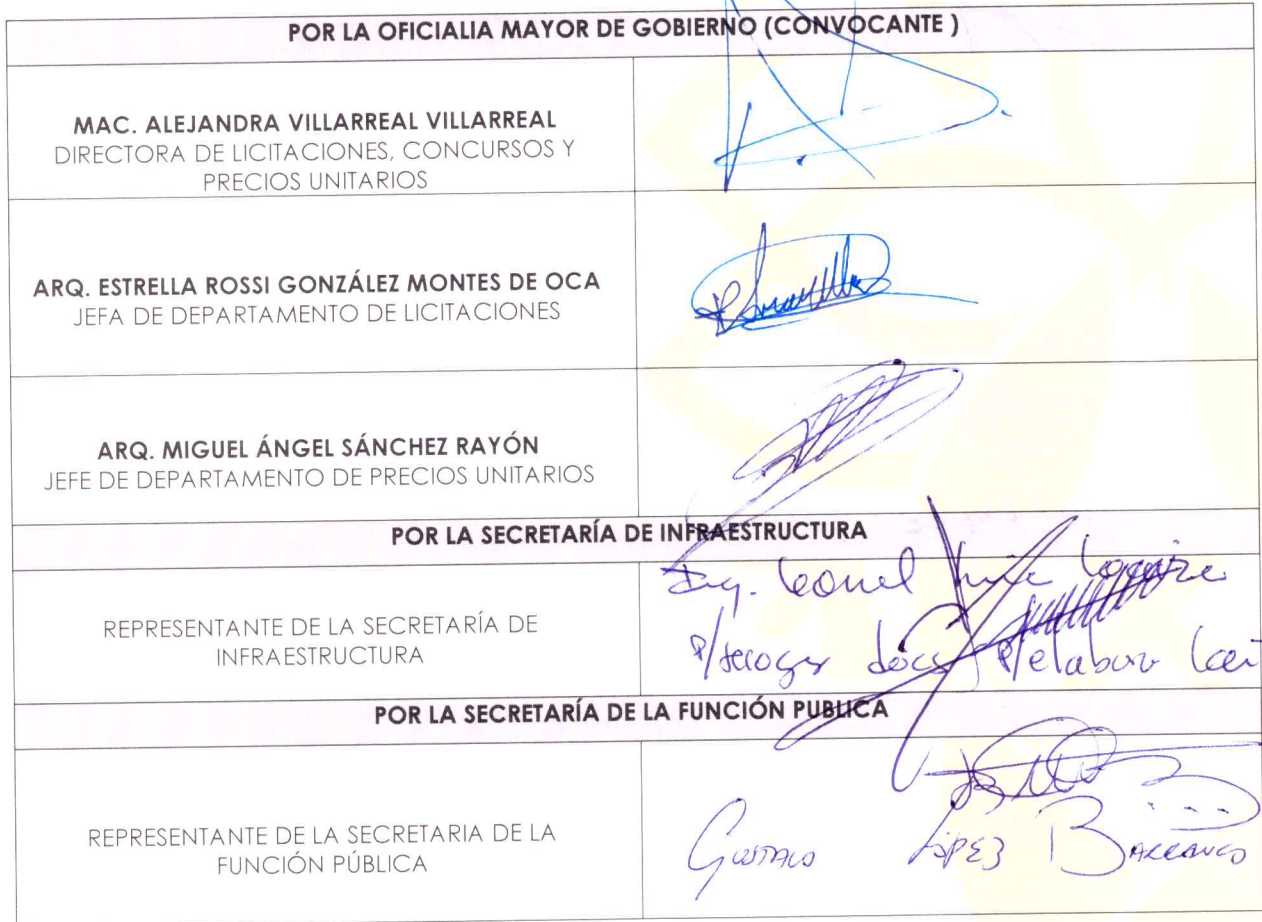 POR LA OFICIALIA MAYOR DE GOBIERNO (CONVOCANTE )
MAC. ALEJANDRA VILLARREAL VILLARREAL
DIRECTORA DE LICITACIONES, CONCURSOS Y
PRECIOS UNITARIOS
ARQ. ESTRELLA ROSSI GONZÁLEZ MONTES DE OCA
JEFA DE DEPARTAMENTO DE LICITACIONES
ARQ. MIGUEL ÁNGEL SÁNCHEZ RAYÓN
JEFE DE DEPARTAMENTO DE PRECIOS UNITARIOS
POR LA SECRETARÍA DE INFRAESTRUCTURA
REPRESENTANTE DE LA SECRETARÍA DE
INFRAESTRUCTURA
Ing. Leonel
POR LA SECRETARÍA DE LA FUNCIÓN PUBLICA
REPRESENTANTE DE LA SECRETARIA DE LA
FUNCIÓN PÚBLICA
GUSTAVO LÓPEZ BARRANCO